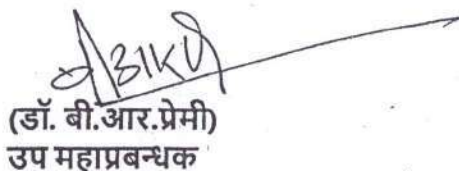 (डॉ. बी.आर.प्रेमी)
उप महाप्रबन्धक